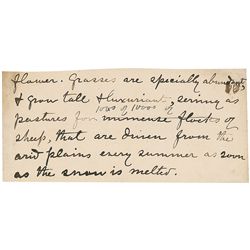 flower. Grasses are specially abundant,
& grow tall & luxuriant, serving as
pastures for immense flocks of
100s of 1000s of
sheep, that are driven from the
arid plains every summer as soon
as the snow is melted.